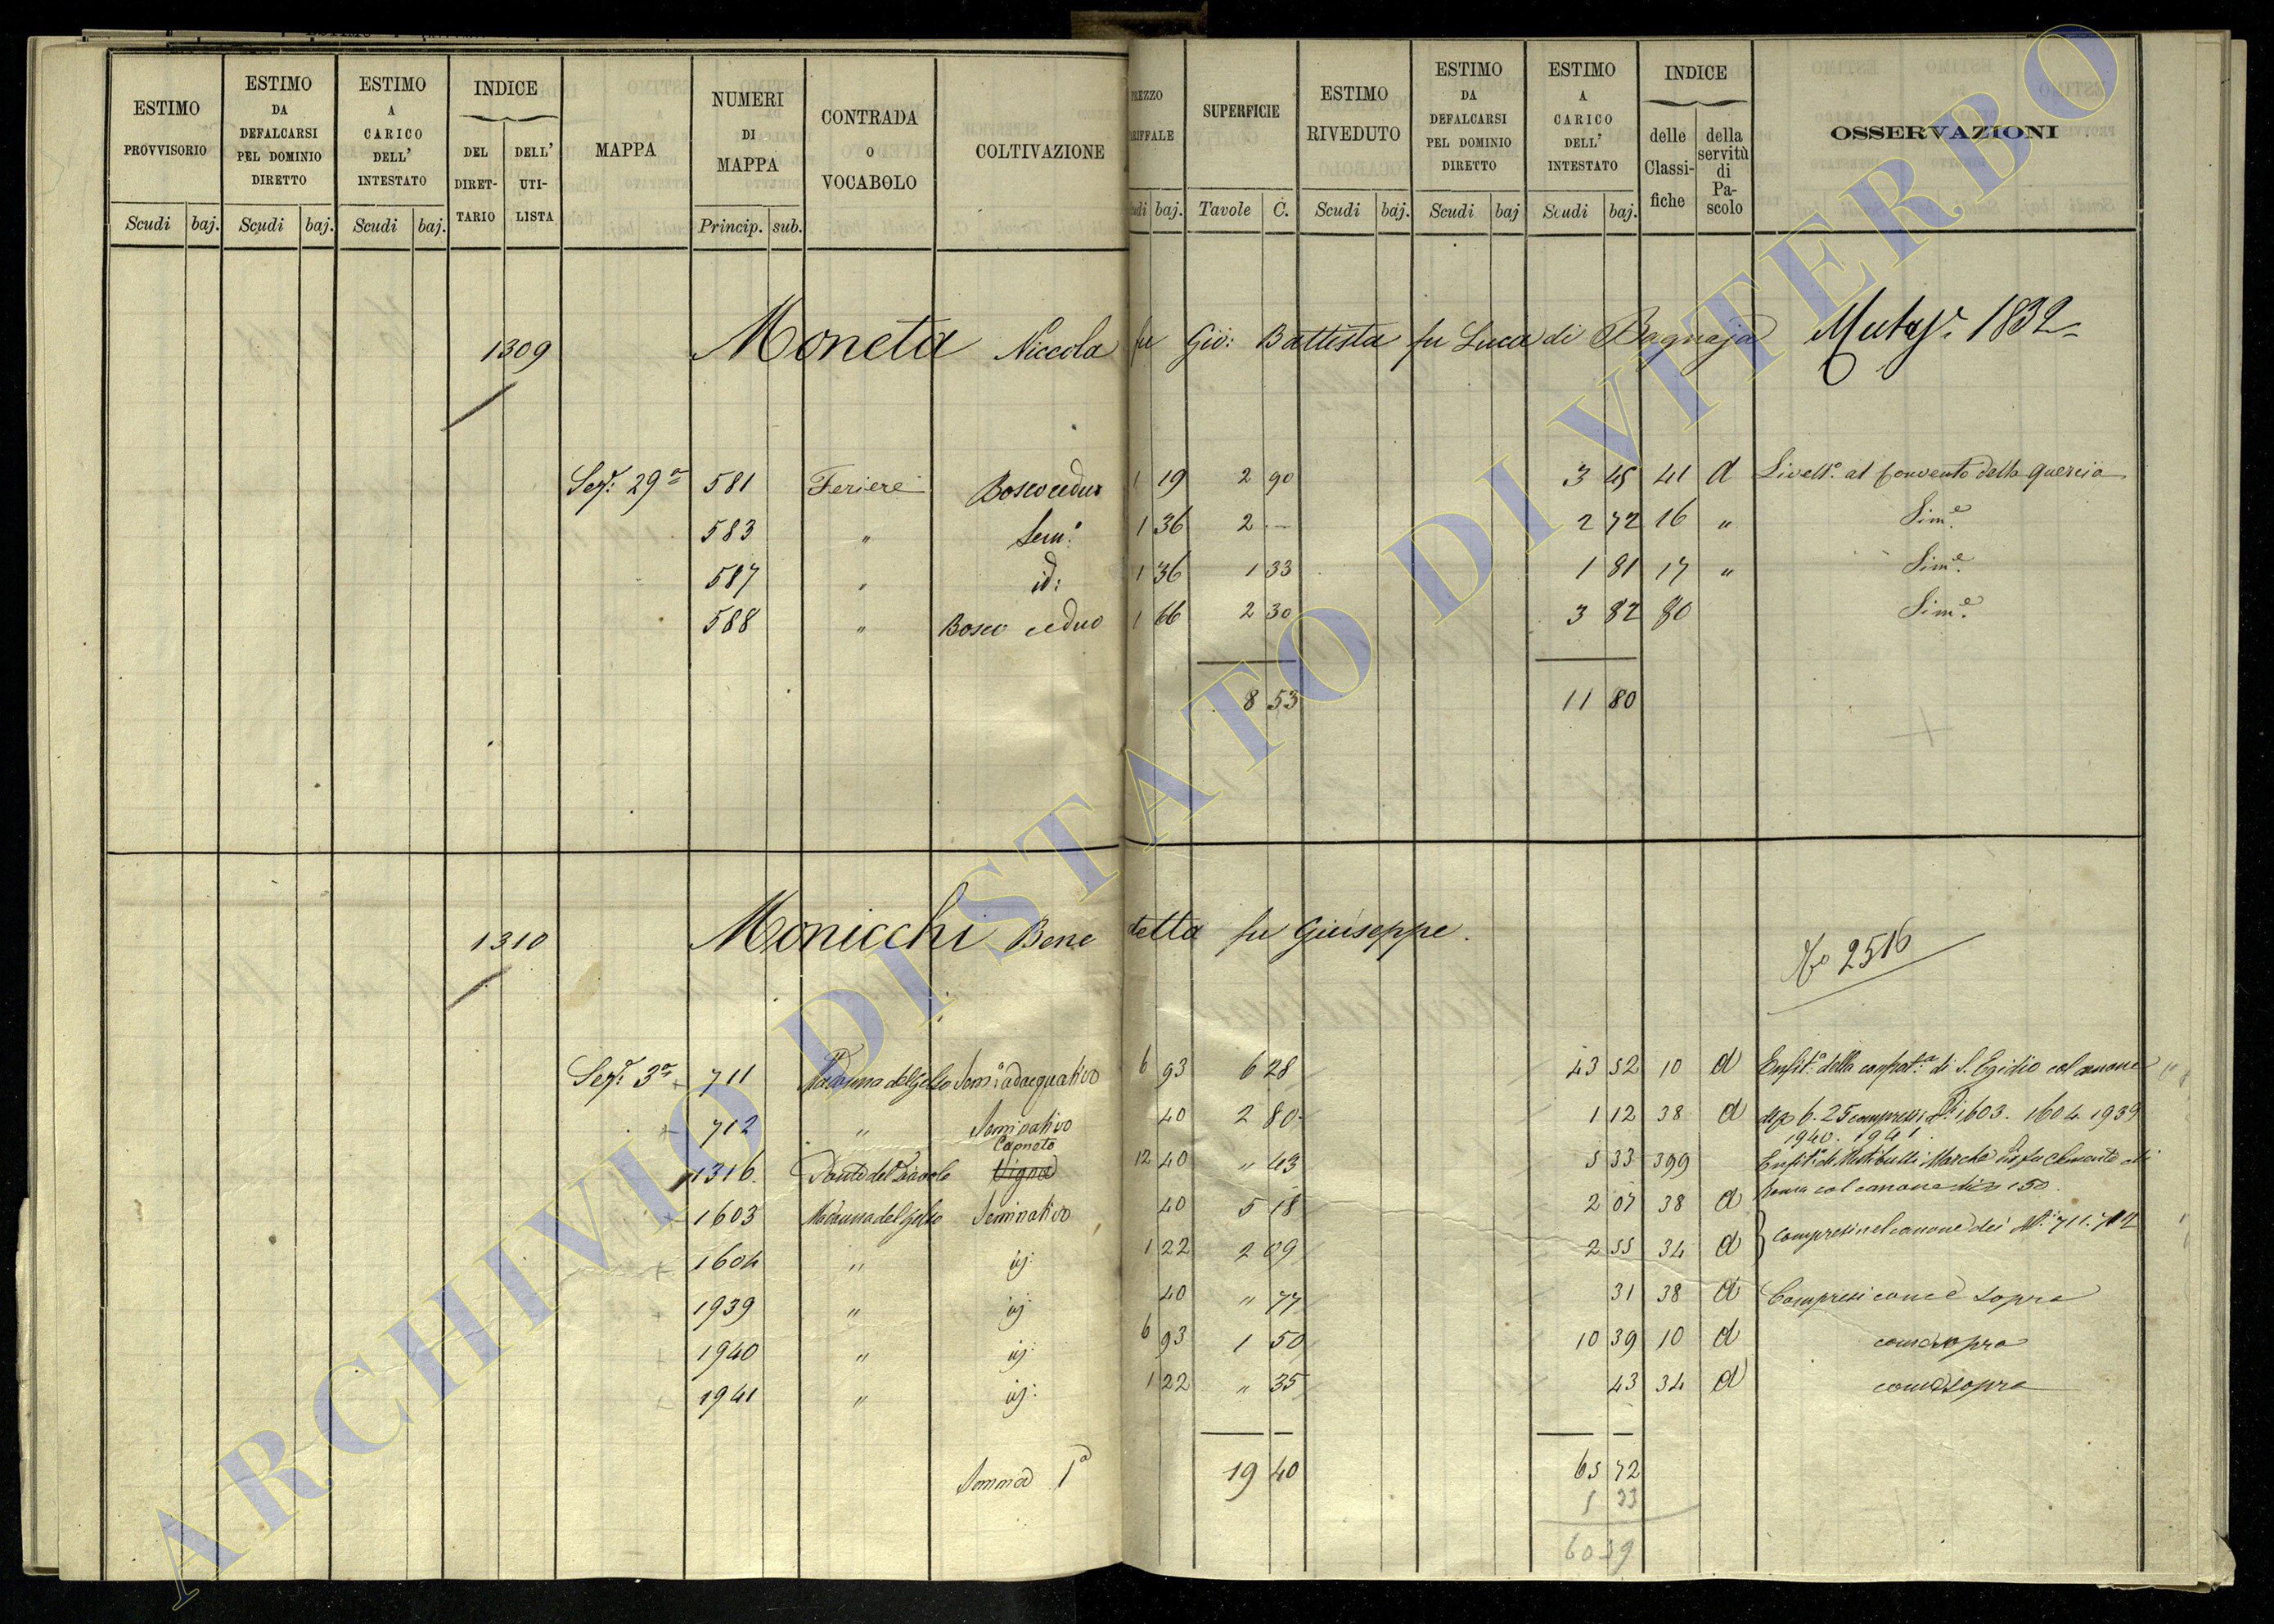 ESTIMO PROVVISORIO Scudi baj.
ESTIMO DA DEFALCARSI PEL DOMINIO DIRETTO Scudi baj.
ESTIMO A CARICO DELL' INTESTATO Scudi baj.
INDICE DEL DIRETTARIO DELL' UTILISTA
MAPPA
NUMERI DI MAPPA Princip. sub.
CONTRADA O VOCABOLO
COLTIVAZIONE
REZZO RIFFALE udi baj.
SUPERFICIE Tavole C.
ESTIMO RIVEDUTO Scudi baj.
ESTIMO DA DEFALCARSI PEL DOMINIO DIRETTO Scudi baj
ESTIMO A CARICO DELL' INTESTATO Scudi baj.
INDICE delle Classifiche della servitù di Pascolo
OSSERVAZIONI
1309 Moneta Niccola fu Gio: Battista fu Luca di Bagnaja 1832
Sez: 29a 581 Feriere Bosco ceduo 1 19 2 90 3 45 41 d Livell.o al Convento della Quercia
583 " Sem.o 1 36 2 — 2 72 16 " Sim.e
587 " id: 1 36 1 33 1 81 17 " Sim.e
588 " Bosco ceduo 1 66 2 30 3 82 80 Sim.e
8 53 11 80
1310 Monicchi Benedetta fu Giuseppe.
No 2516
Sez: 3a 711 Madonna del Giglio Sem.o adacquativo 6 93 6 28 43 52 10 d Enfit.a della confrat.a di S. Egidio col canone
712 " Seminativo 40 2 80 1 12 38 d di 6. 25 compresi i N.i 1603. 1604. 1939
1940. 1941.
1316. Ponte del Diavolo Vigna Canneto 12 40 " 43 5 33 399 Enfit.a di Marche fu Clemente di
Roma col canone di 1 50.
1603 Madonna del Giglio Seminativo 40 5 18 2 07 38 d
1604 " id: 1 22 2 09 2 55 34 d compresi nel canone dei N.i 711. 712
1939 " id: 40 " 77 31 38 d Compresi come sopra
1940 " id: 6 93 1 50 10 39 10 d come sopra
1941 " id: 1 22 " 35 43 34 d come sopra
Somma 1a 19 40 65 72
5 33
60 39
ARCHIVIO DI STATO DI VITERBO